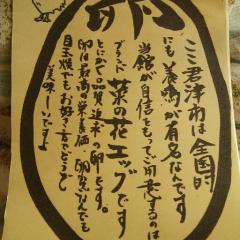 卵
ここ君津市は全国的
にも養鶏が有名なんです
当館が自信をもってご用意するのは
ブランド菜の花エッグです
とにかく品質追求の卵です。
卵は最高の栄養価、卵焼でも
目玉焼でもお好きな方でどうぞ
美味しいですよ